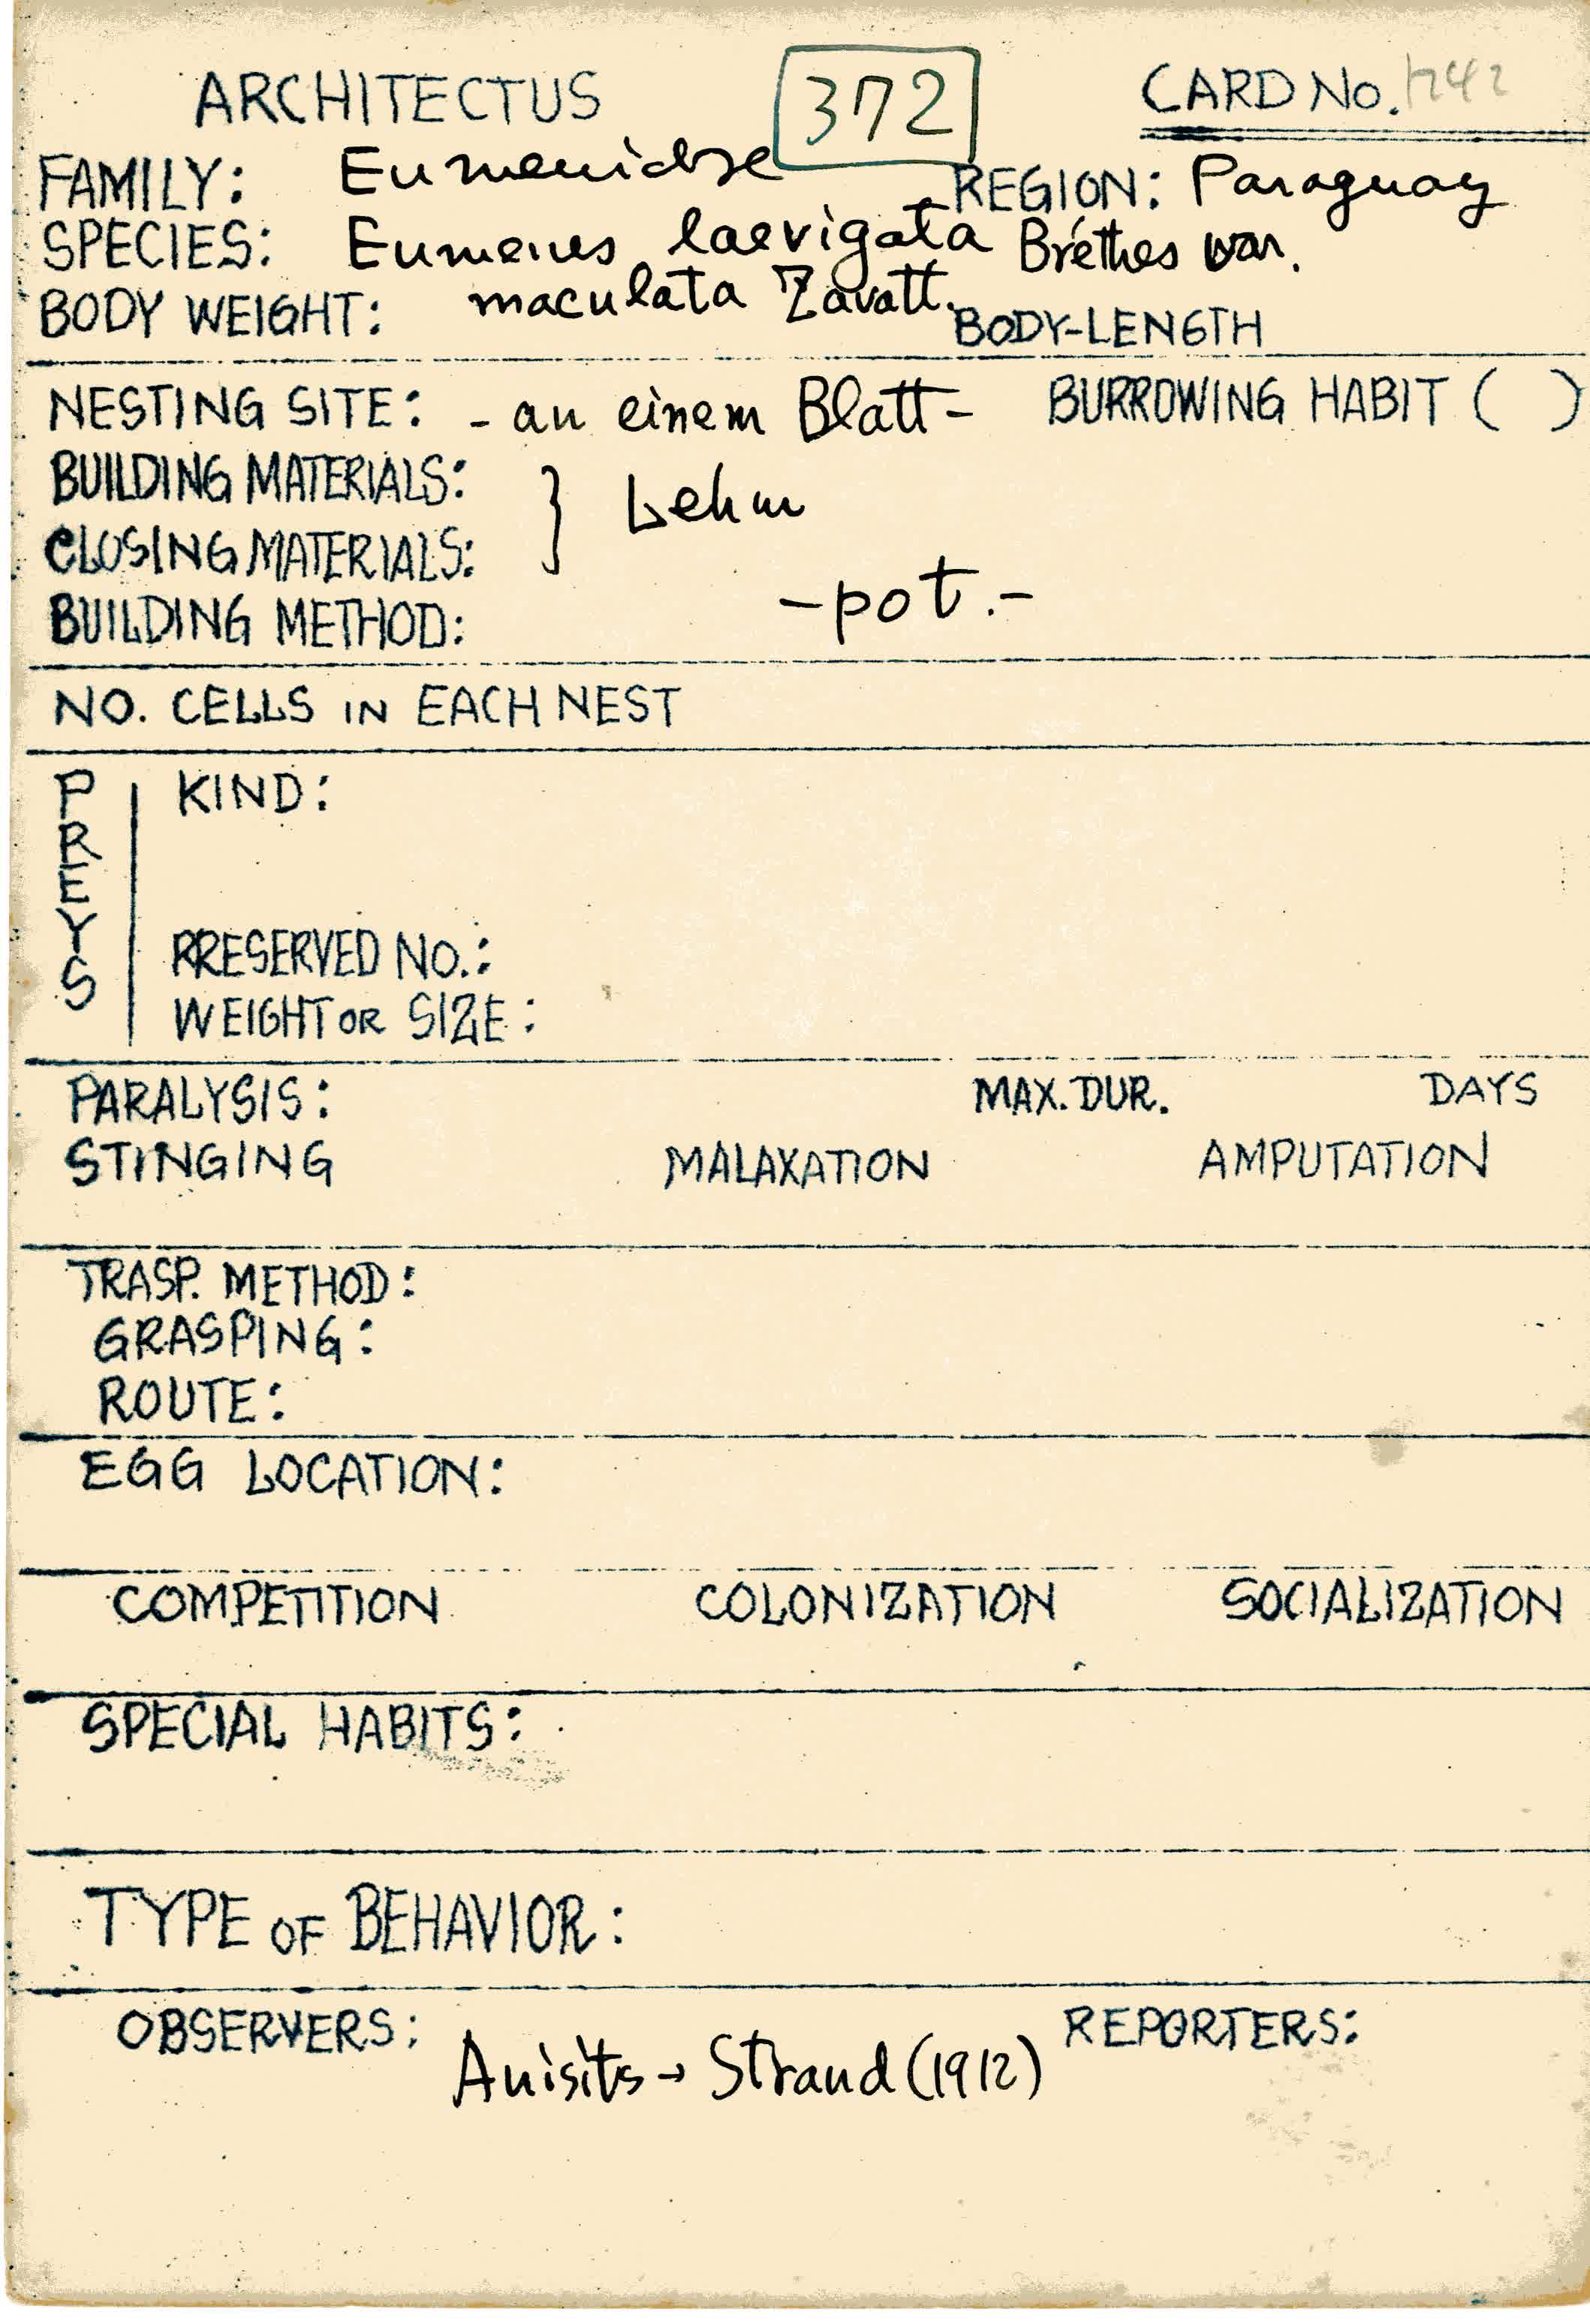 ARCHITECTUS 372 CARD No.
FAMILY: Eumenidae REGION: Paraguay
SPECIES: Eumenes laevigata Bréthes var.
maculata Zavatt.
BODY WEIGHT: BODY-LENGTH
NESTING SITE: - an einem Blatt - BURROWING HABIT ( )
BUILDING MATERIALS:
CLOSING MATERIALS: } Lehm
BUILDING METHOD: -pot.-
NO. CELLS IN EACH NEST
PREYS
KIND:
PRESERVED NO.:
WEIGHT OR SIZE:
PARALYSIS: MAX. DUR. DAYS
STINGING MALAXATION AMPUTATION
TRASP. METHOD:
GRASPING:
ROUTE:
EGG LOCATION:
COMPETITION COLONIZATION SOCIALIZATION
SPECIAL HABITS:
TYPE OF BEHAVIOR:
OBSERVERS: REPORTERS:
Anisits → Strand (1912)